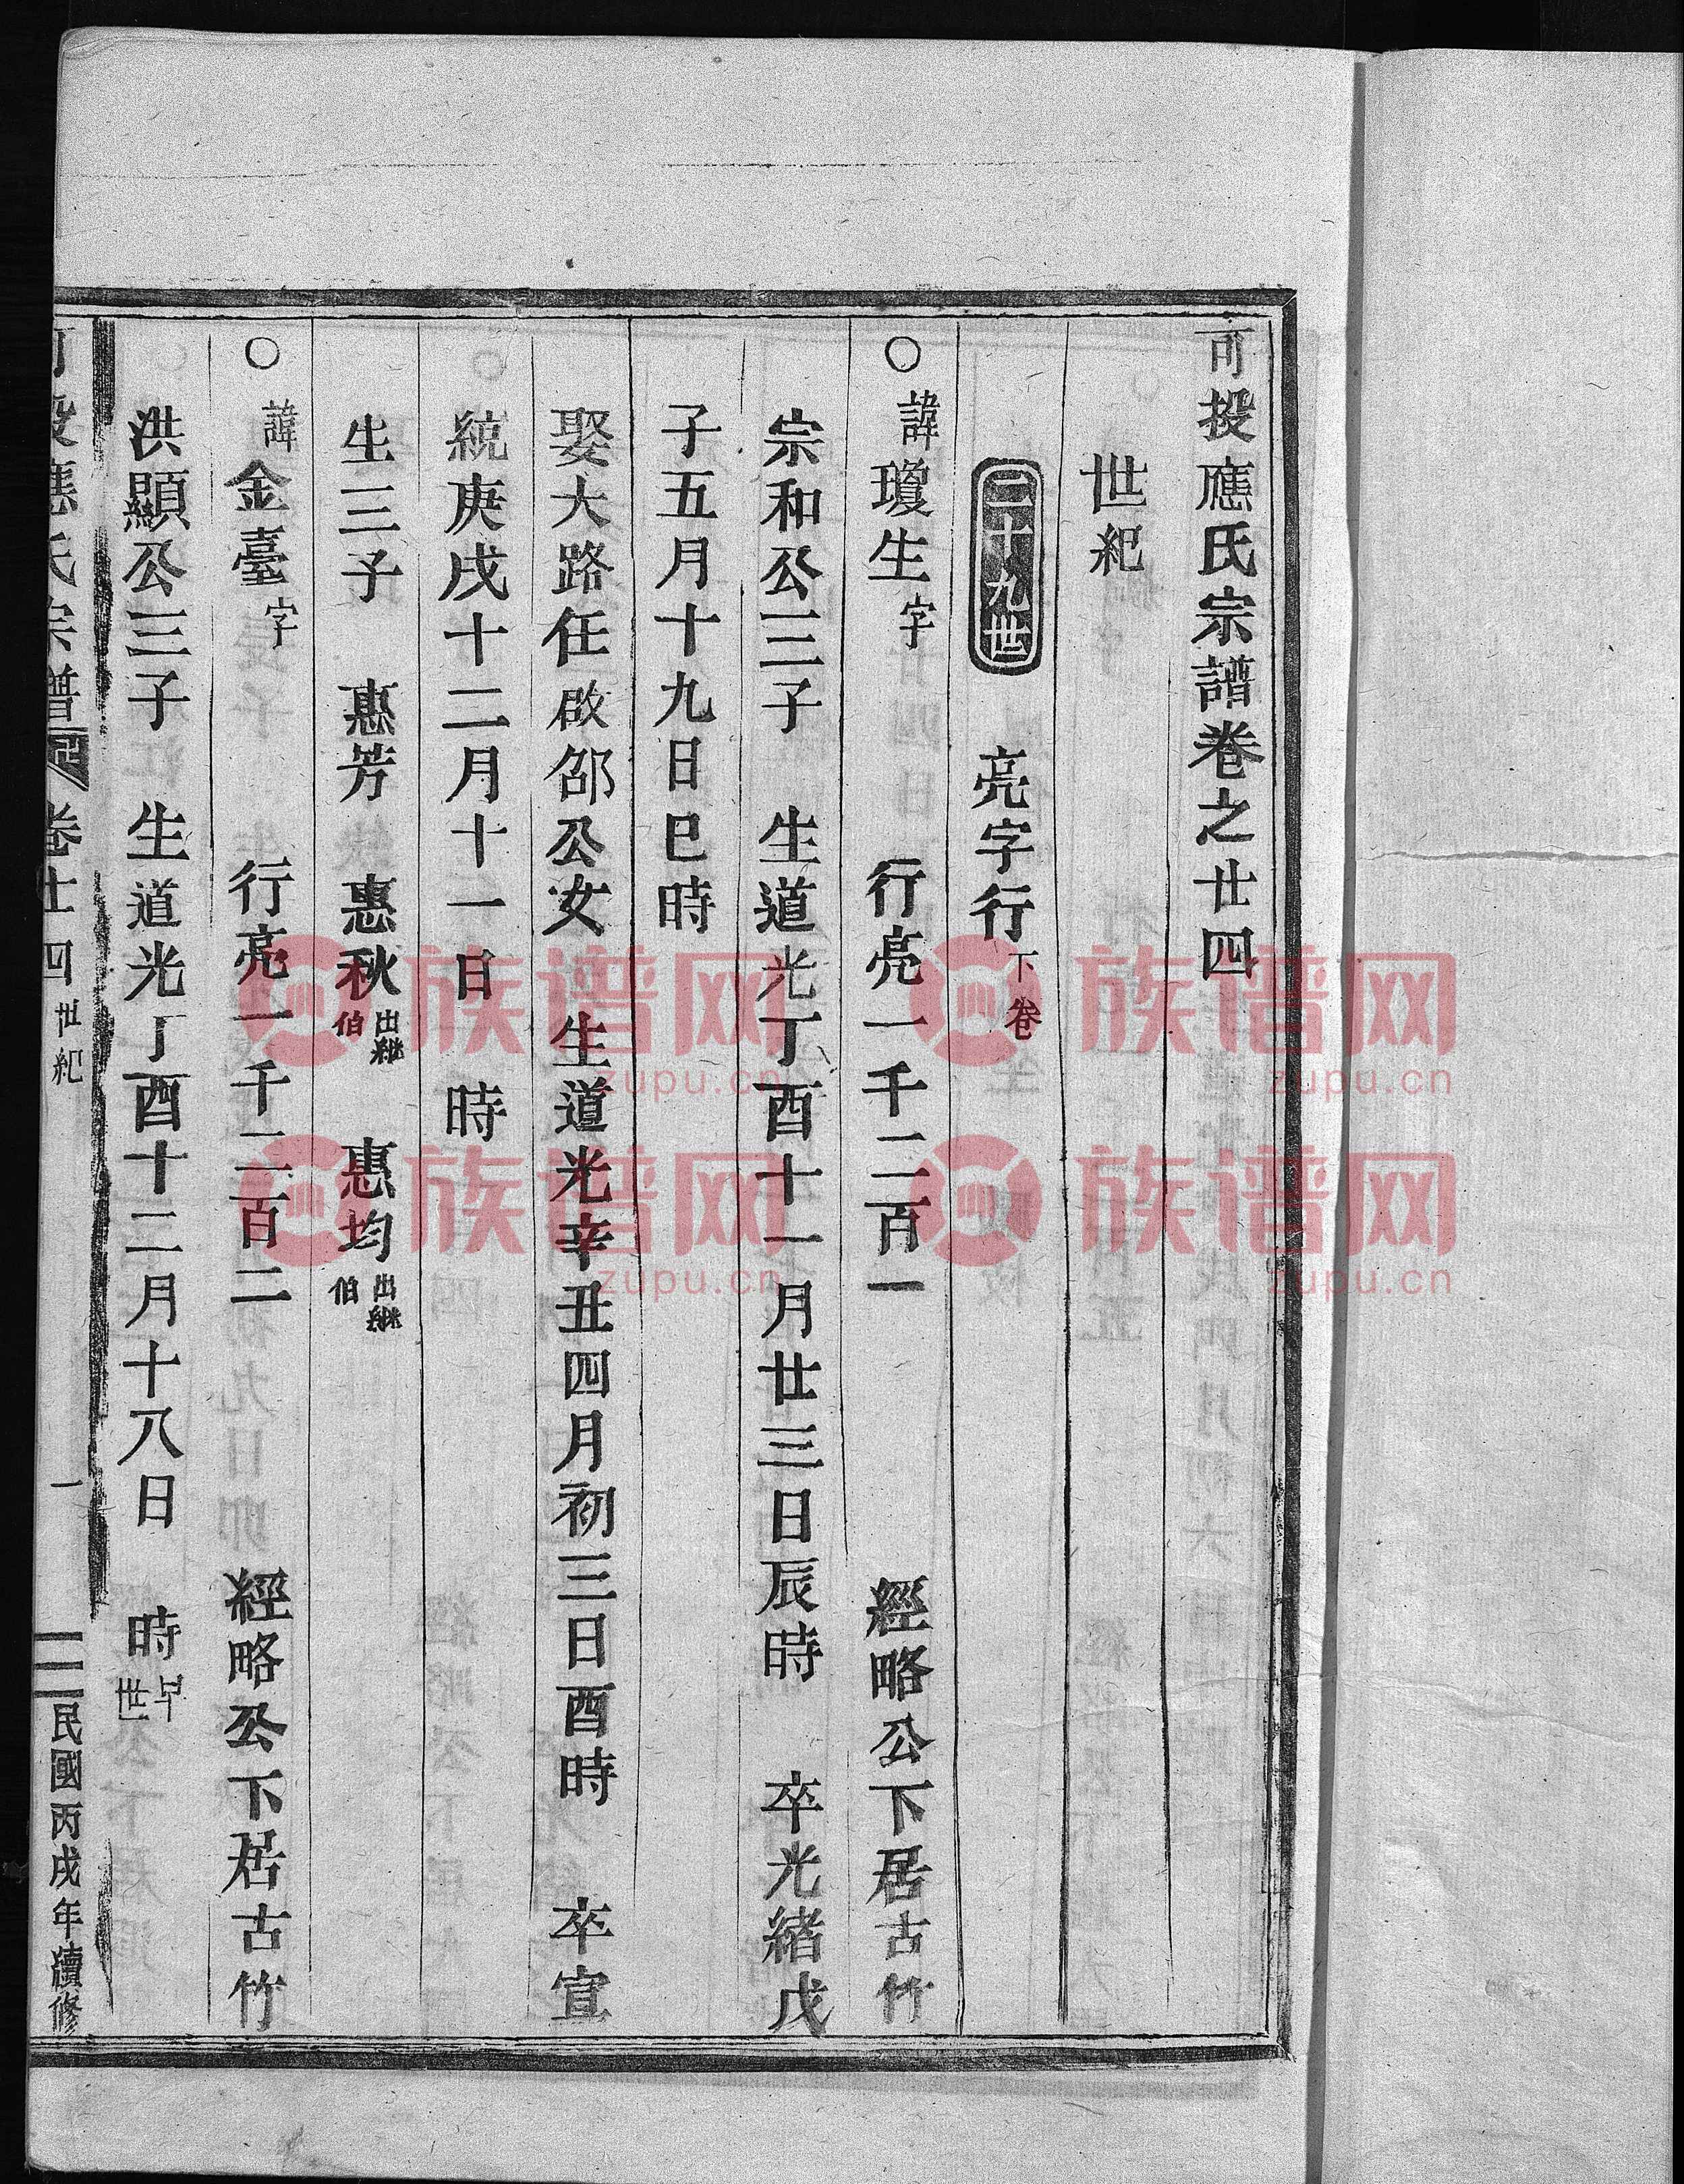 可投應氏宗譜卷之廿四
世紀
二十九世 亮字行下卷
○諱瓊生字 行亮一千二百一 經略公下居古竹
宗和公三子 生道光丁酉十一月廿三日辰時 卒光緒戊
子五月十九日巳時
娶大路任啟邵公女 生道光辛丑四月初三日酉時 卒宣
統庚戌十二月十一日 時
生三子 惠芳 惠秋出繼伯 惠均出繼伯
○諱金臺字 行亮一千二百二 經略公下居古竹
洪顯公三子 生道光丁酉十二月十八日 時早世
可投應氏宗譜 卷廿四 世紀 一 民國丙戌年續修
族谱网 zupu.cn
族谱网 zupu.cn
族谱网 zupu.cn
族谱网 zupu.cn